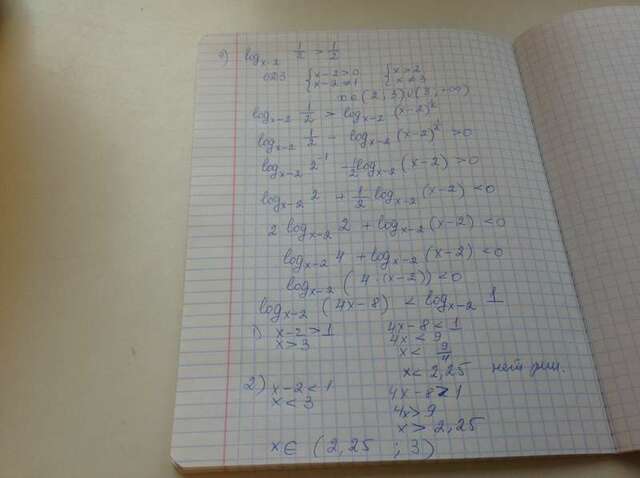 2) log_{x-2} 1/2 > 1/2
ОДЗ { x-2>0 x-2≠1 { x>2 x≠3
x∈(2;3)∪(3;+∞)
log_{x-2} 1/2 > log_{x-2} (x-2)^{1/2}
log_{x-2} 1/2 - log_{x-2} (x-2)^{1/2} >0
log_{x-2} 2^{-1} - 1/2 log_{x-2} (x-2) >0
log_{x-2} 2 + 1/2 log_{x-2} (x-2) <0
2 log_{x-2} 2 + log_{x-2} (x-2) <0
log_{x-2} 4 + log_{x-2} (x-2) <0
log_{x-2} (4·(x-2)) <0
log_{x-2} (4x-8) < log_{x-2} 1
1) x-2>1 4x-8<1
x>3 4x<9
x< 9/4
x<2,25 нет реш.
2) x-2<1 4x-8>1
x<3 4x>9
x>2,25
x∈ (2,25 ; 3)